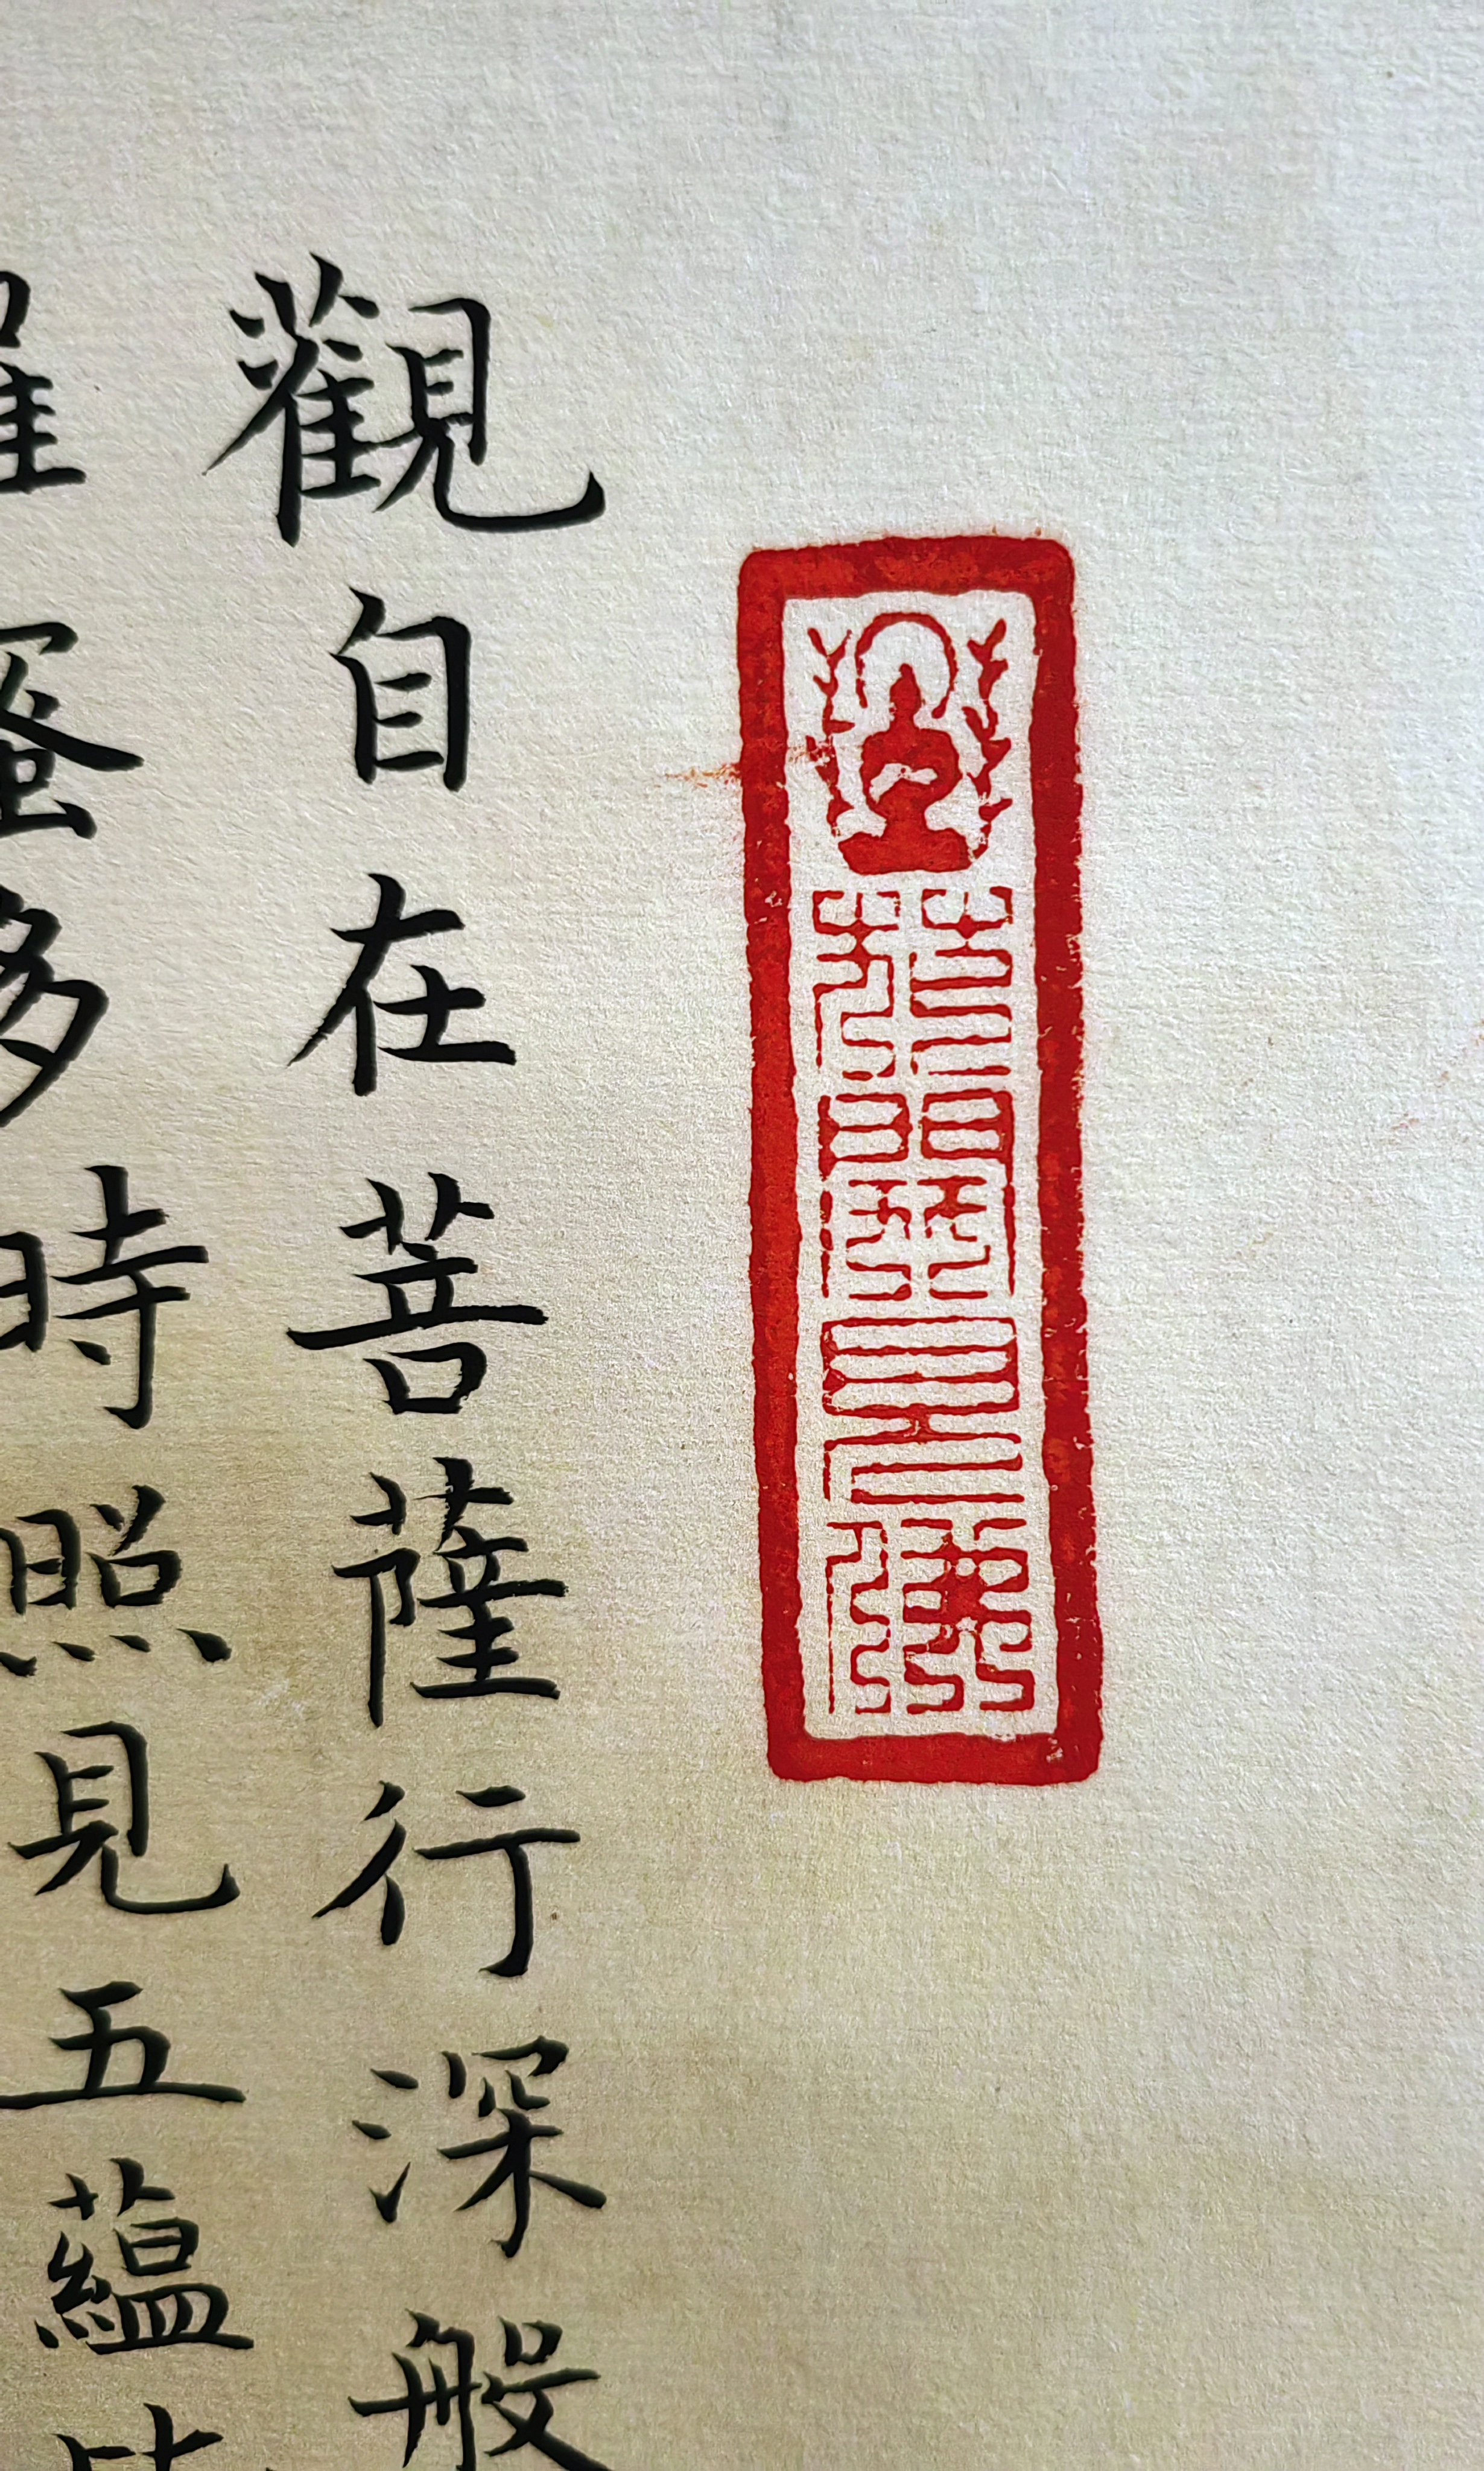 開見佛
觀自在菩薩行深般
羅蜜多時照見五蘊皆